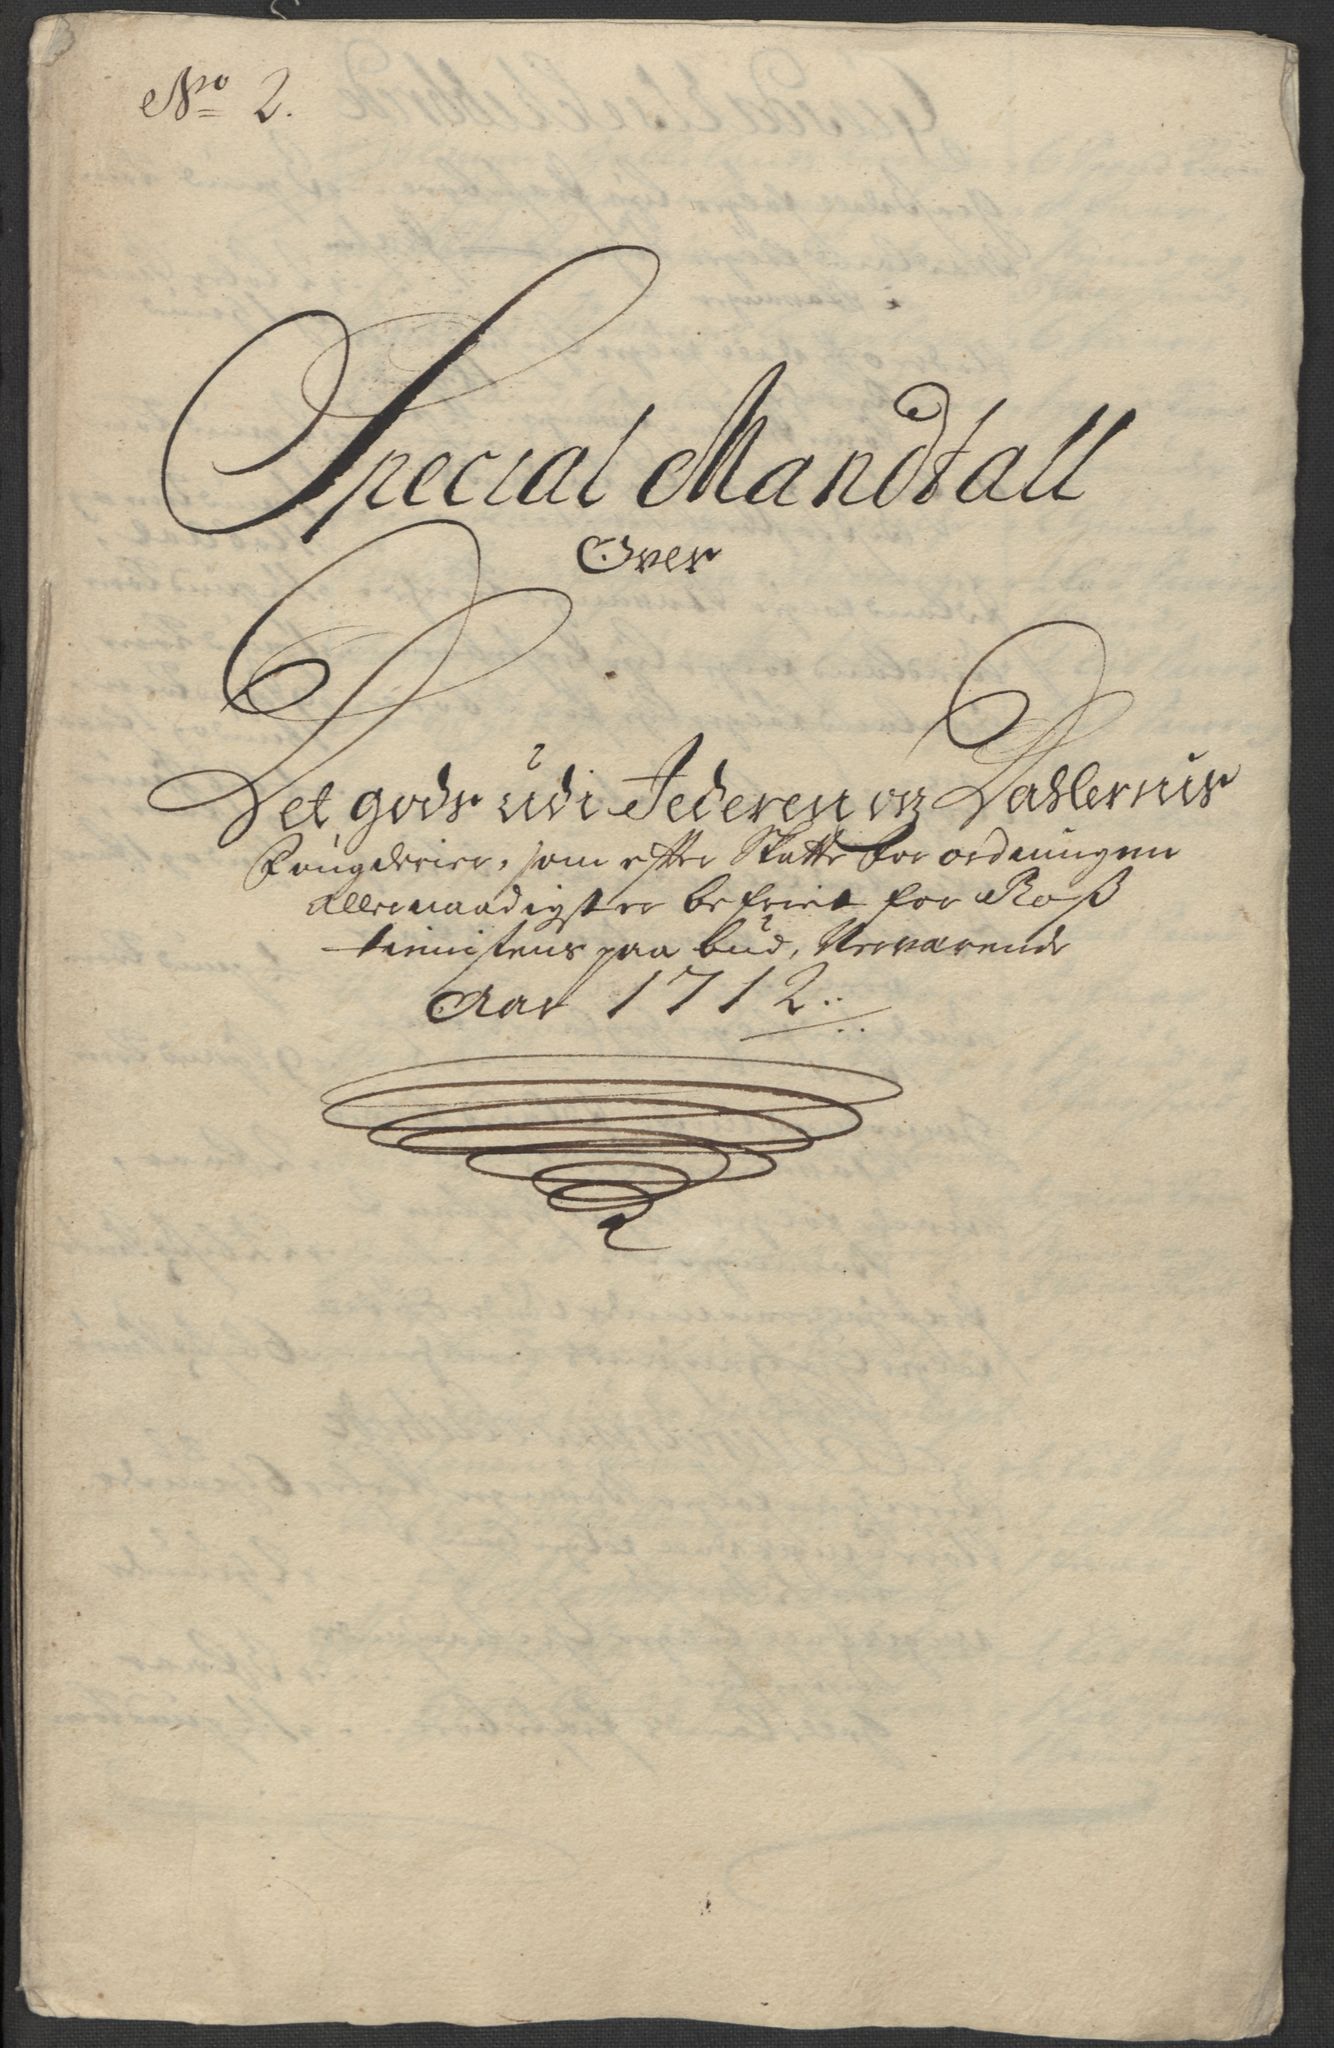 No 2.
Special Mandtall
Over
Det gods udi Jederen og Dadlernis
Fougderier, som efter Skatte forordningen
allernaadigst er befriet for Roß
tienistens paabud, Nerværende
Aar 1712..